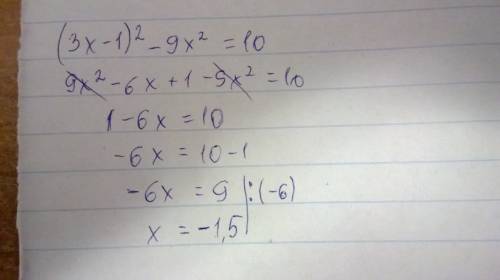 (3x-1)² - 9x² = 10
9x² - 6x + 1 - 9x² = 10
1 - 6x = 10
-6x = 10 - 1
-6x = 9 | : (-6)
x = -1,5